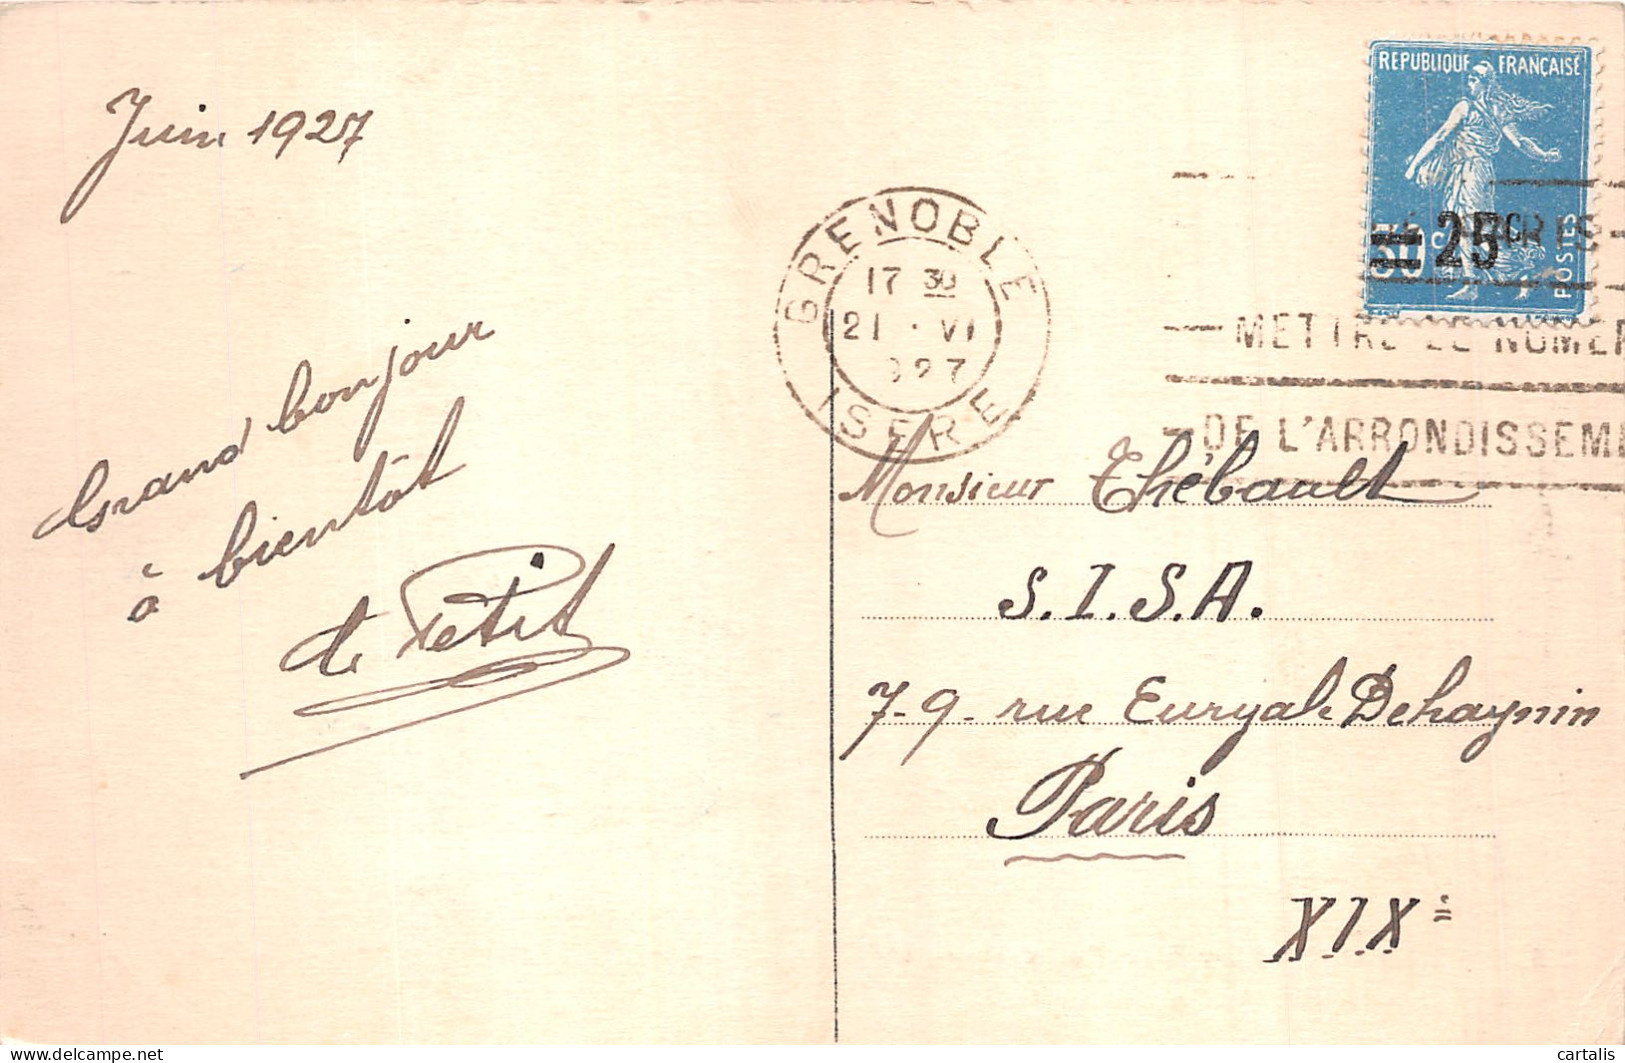 Juin 1927
Grand bonjour
à bientôt
de Petit
REPUBLIQUE FRANÇAISE
30 C
= 25 c
POSTES
GRENOBLE
17 30
21 · VI
927
ISERE
PARIS -
— METTRE LE NUMER
— DE L'ARRONDISSEM
Monsieur Thébault
S.I.S.A.
7-9- rue Euryale Dehaynin
Paris
XIXe
delcampe.net
cartalis